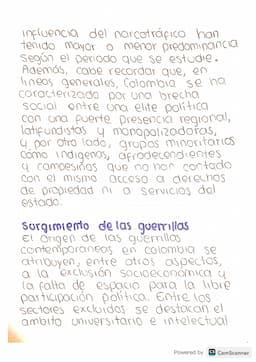 influencia del narcotráfico han
tenido mayor o menor predominancia
según el periodo que se estudie.
Además, cabe recordar que, en
lineas generales, Colombia se ha
caracterizado por una brecha
social entre una elite política
con una fuerte presencia regional,
latifundistas y monopolizadoras,
y por otro lado, grupos minoritarios
cómo indigenos, afrodecendientes
y campesinos que no han contado
con el mismo acceso a derechos
de propiedad ni a servicios del
estado.
Surgimiento de las guerrillas
El origen de las guerrillas
contemporaneas en colombia se
atribuyen, entre otros aspectos,
a la exclusión socioeconómica y
la falta de espacio para la libre
participación política. Entre los
sectores excluidos se destacan el
ambito universitario e intelectual
Powered by CS CamScanner